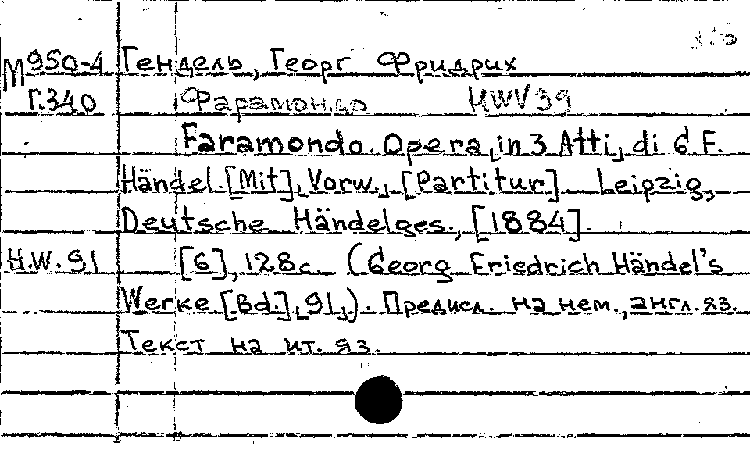 М 950-4 Гендель, Георг Фридрих
Г.340 Фарамондо HWV 39
Faramondo. Opera in 3 Atti di G.F.
Händel. [Mit] Vorw. [Partitur]. Leipzig,
Deutsche Händelges., [1884].
H.W. 91 [6], 128 с. (Georg Friedrich Händel's
Werke [Bd.] 91). Предисл. на нем., англ. яз.
Текст на ит. яз.